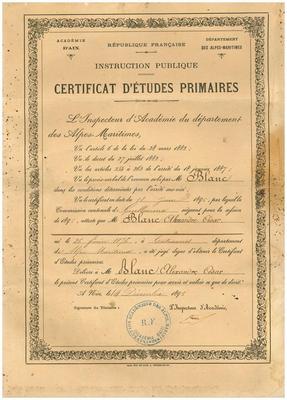 ACADÉMIE
D'AIX.
RÉPUBLIQUE FRANÇAISE
DÉPARTEMENT
DES ALPES-MARITIMES
INSTRUCTION PUBLIQUE
CERTIFICAT D'ÉTUDES PRIMAIRES
L'Inspecteur d'Académie du département
des Alpes-Maritimes,
Vu l'article 6 de la loi du 28 mars 1882,
Vu le décret du 27 juillet 1882,
Vu les articles 254 à 263 de l'arrêté du 18 janvier 1887,
Vu le procès-verbal de l'examen subi par M Blanc
dans les conditions déterminées par l'arrêté susvisé,
Vu le certificat en date du juin par lequel la
Commission cantonale d siégeant pour la session
de 189 , atteste que M Blanc (Alexandre César)
né le à département
d Alpes Maritimes, a été jugé digne d'obtenir le Certificat
d'Études primaires.
Délivre à M Blanc (Alexandre César)
le présent Certificat d'Études primaires pour servir et valoir ce que de droit.
A Nice, le 189
Signature du Titulaire :
L'Inspecteur d'Académie,
R.F.